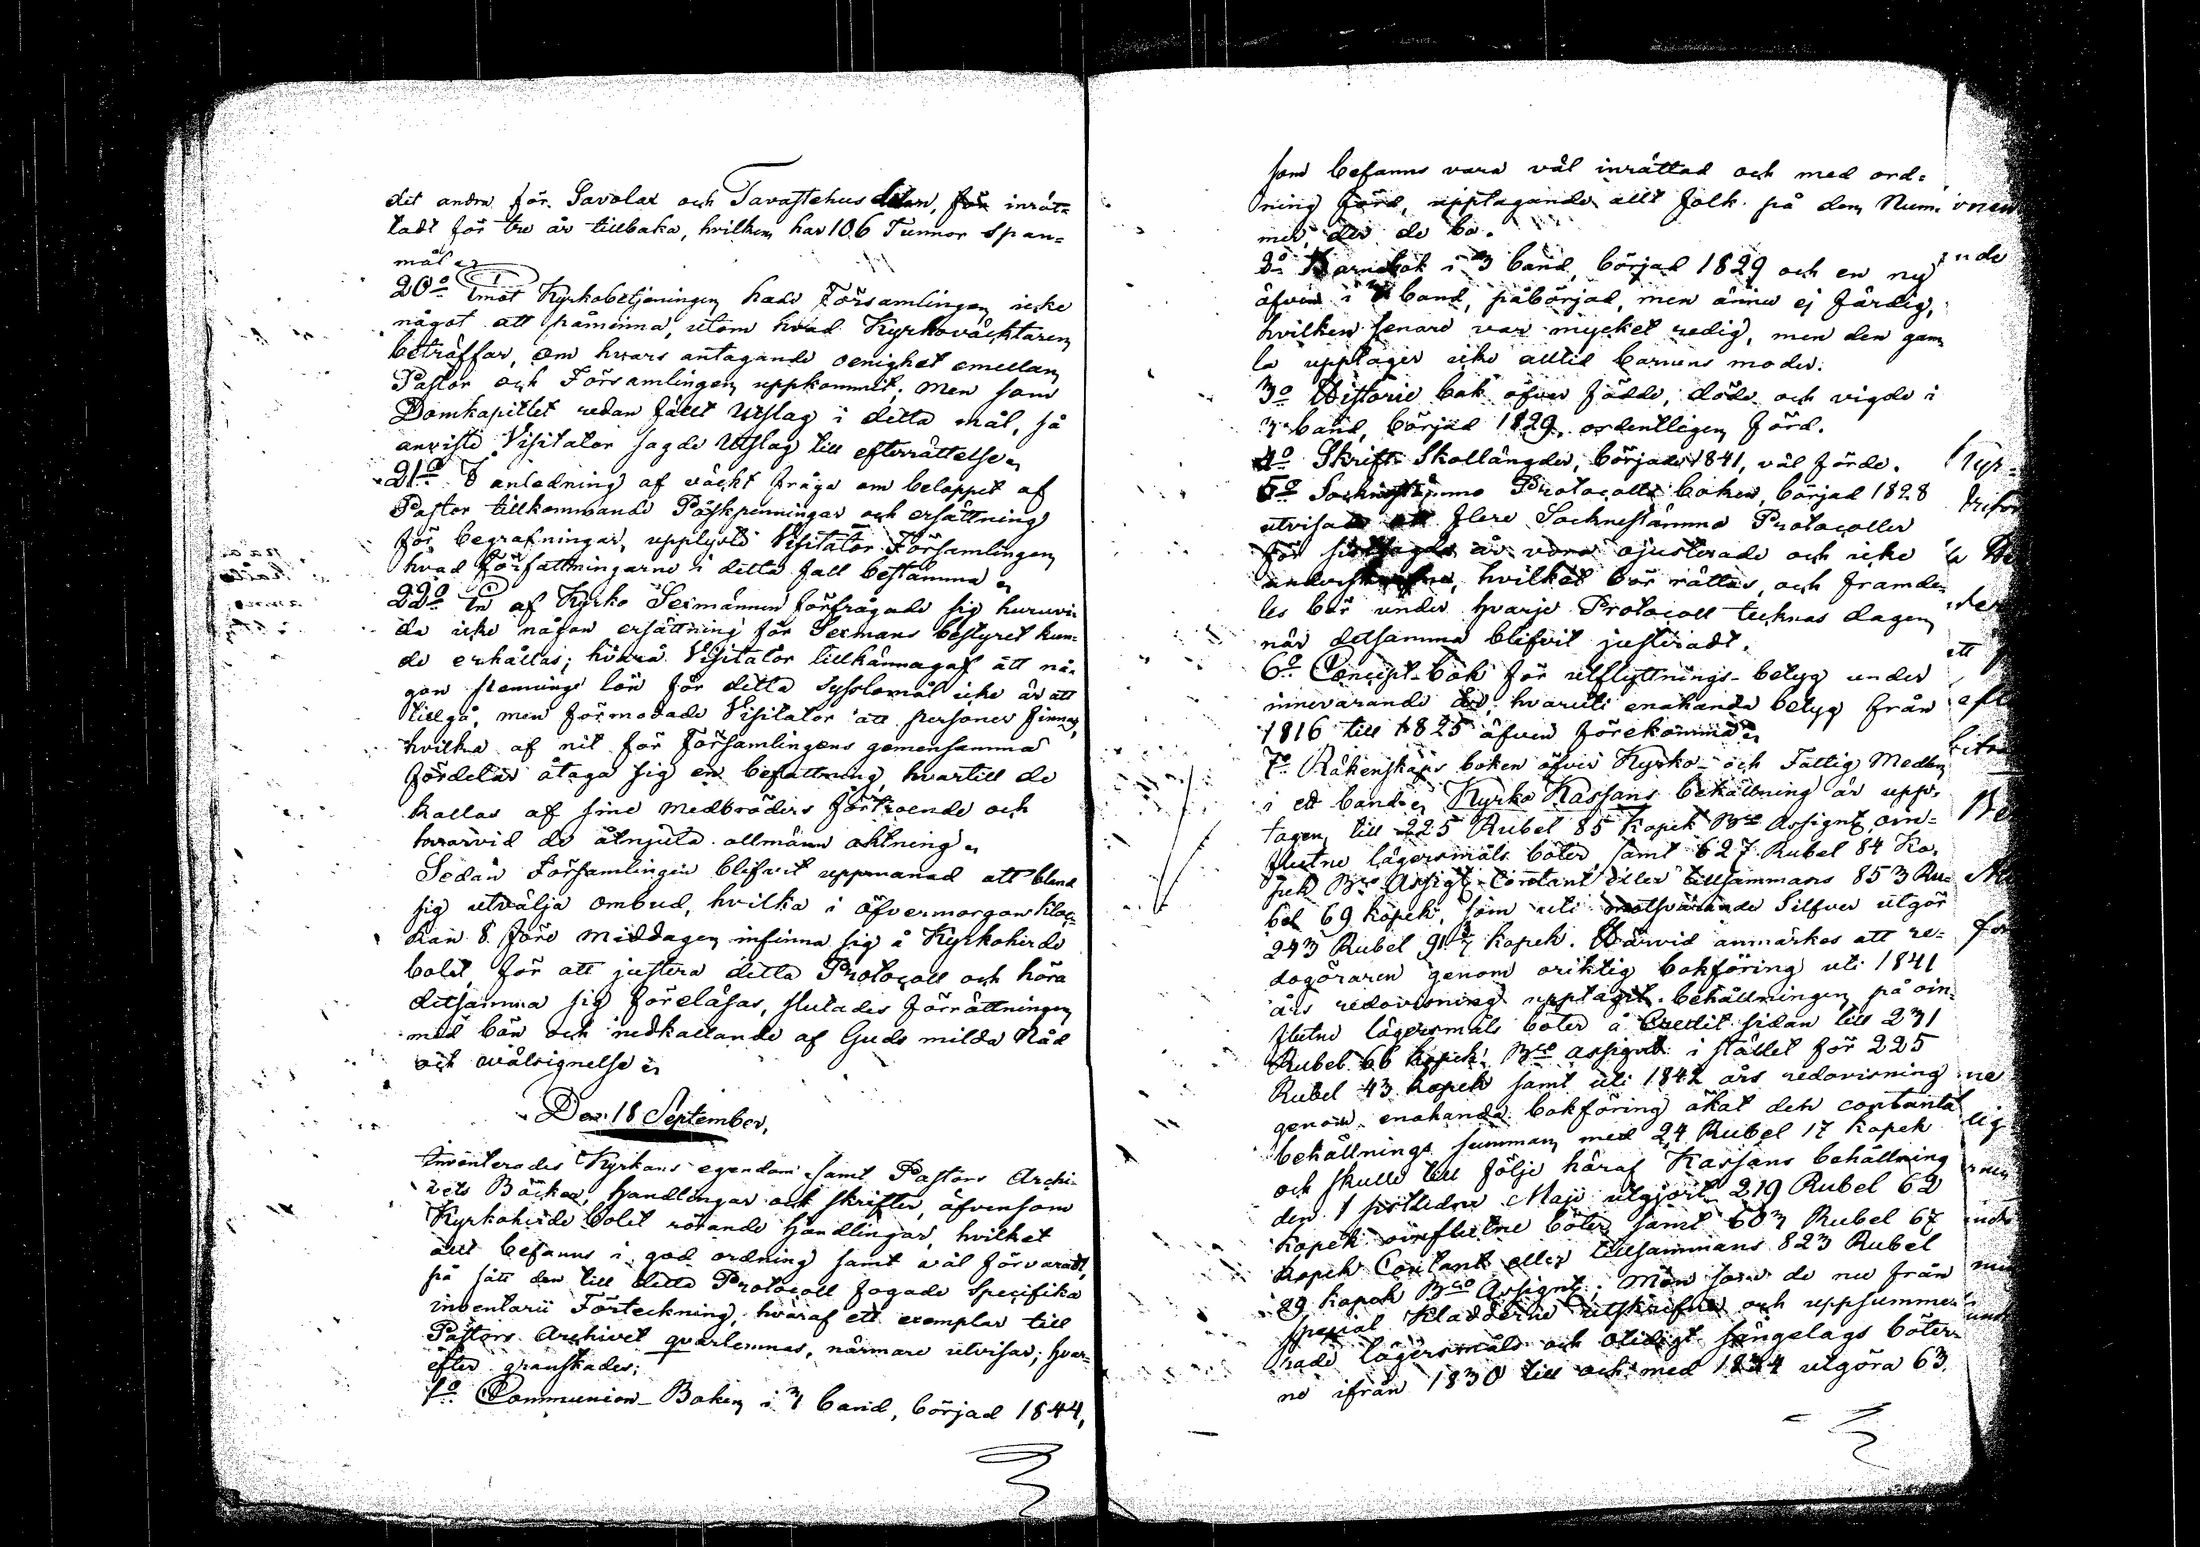 det andra för Savolax och Tavastehus delen, för inrät-
tadt för tre år tillbaka, hvilken har 106 Tunnor Span-
mål.
20o Emot Kyrkobetjeningen hade Församlingen icke
något att påminna, utom hvad Kyrkoväcktaren
beträffar, om hvars antagande oenighet emellan
Pastor och Församlingen uppkommit; men som
Domkapitlet redan fällt Utslag i detta mål, så
anviste Visitator sagde Utslag till efterrättelse.
21o I anledning af väckt fråga om beloppet af
Pastor tillkommande Påskpenningar och ersättning
för begrafningar, upplyste Visitator Församlingen
hvad författningarne i detta fall bestämma.
22o En af Kyrko Sexmännen förfrågade sig huruvi-
da icke någon ersättning för Sexmans bestyret kun-
de erhållas; hvarå Visitator tillkännagaf att nå-
gon penninge lön för detta sysslomål icke är att
tillgå, men förmodade Visitator att personer finnas,
hvilka af nit för Församlingens gemensamma
fördelar åtaga sig en befattning, hvartill de
kallas af sine medbröders förtroende och
hvarvid de åtnjuta allmän aktning.
Sedan Församlingen blifvit uppmanad att bland
sig utvälja ombud, hvilka i öfvermorgon kloc-
kan 8 före middagen infinna sig å Kyrkoherde
bolet, för att justera detta Protocoll och höra
detsamma sig föreläsas, slutades förrättningen
med bön och nedkallande af Guds milda Nåd
och wälsignelse.
Den 18 September,
Inventerades Kyrkans egendom samt Pastors Archi-
vets Böcker, handlingar och skrifter, äfvensom
Kyrkoherde bolet rörande handlingar, hvilket
allt befanns i god ordning samt väl förvaradt,
på sätt den till detta Protocoll fogade specifika
inventarii Förteckning, hvaraf ett exemplar till
Pastors Archivet qvarlemnas, närmare utvisar; hvar-
efter granskades;
1o Communion-Boken i 3 band, börjad 1844,
som befanns vara väl inrättad och med ord-
ning förd, upptagande allt folk på den Num-
mer, der de bo.
2o Barnabok i 3 band, börjad 1829 och en ny
äfven i band, påbörjad, men ännu ej färdig,
hvilken senare var mycket redig, men den gam
la upptager icke alltid barnens moder.
3o Historie bok öfver födde, döde och vigde i
3 band, börjad 1829, ordentligen förd.
4o Skrift Skollängder, började 1841, väl förde.
5o Sockenstämmo Protocolls boken, börjad 1828
utvisade att flere Sockenstämmo Protocoller
för sistsagde år voro ojusterade och icke
underskrifne, hvilket bör rättas, och framde-
les bör under hvarje Protocoll tecknas dagen
när detsamma blifvit justeradt.
6o Concept-bok för utflyttnings-betyg under
innevarande år, hvaruti enahanda betyg från
1816 till 1825 äfven förekomma.
7o Räkenskaps boken öfver Kyrko- och Fattig Medlen
i ett band. Kyrko Kassans behållning är upp-
tagen till 225 Rubel 85 kopek Bco Assignt oin-
flutne lägersmåls böter, samt 627 Rubel 84 Ko-
pek Bco Assigt Contant eller tillsammans 853 Ru-
bel 69 kopek, som uti motsvarande Silfver utgör
243 Rubel 91 3/7 kopek. Härvid anmärkes att re-
dogöraren genom oriktig bokföring uti 1841
års redovisning upptagit behållningen på oin-
flutne lägersmåls böter å Credit sidan till 231
Rubel 66 kopek Bco assignt i stället för 225
Rubel 43 kopek samt uti 1842 års redovisning
genom enahanda bokföring ökat den contanta
behållnings summan med 24 Rubel 17 kopek
och skulle till följe häraf Kassans behållning
den 1 sistledne Maji utgjort 219 Rubel 62
kopek oinflutne böter samt 603 Rubel 67
kopek Contant eller tillsammans 823 Rubel
29 kopek Bco Assignt; Men som de nu från
special Kladderne utskrifne och uppsumme-
rade lägersmåls och otidigt sängelags böter-
ne ifrån 1830 till och med 1844 utgöra 63